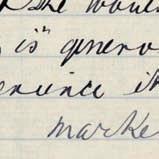 she would
is" genero
erience it
marke